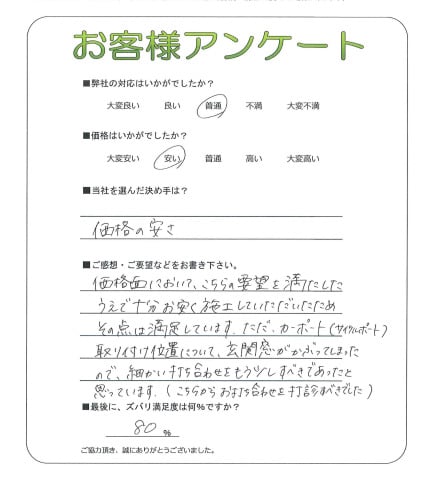 お客様アンケート
■弊社の対応はいかがでしたか?
大変良い 良い 普通 不満 大変不満
■価格はいかがでしたか?
大変安い 安い 普通 高い 大変高い
■当社を選んだ決め手は?
価格の安さ
■ご感想・ご要望などをお書き下さい。
価格面において、こちらの要望を満たした
うえで十分お安く施工していただいたため
その点は満足しています。ただ、カーポート(サイクルポート)
取り付け位置について、玄関窓がかぶってしまった
ので、細かい打ち合わせをもう少しすべきであったと
思っています。(こちらからお打ち合わせを打診すべきでした)
■最後に、ズバリ満足度は何%ですか?
80 %
ご協力頂き、誠にありがとうございました。